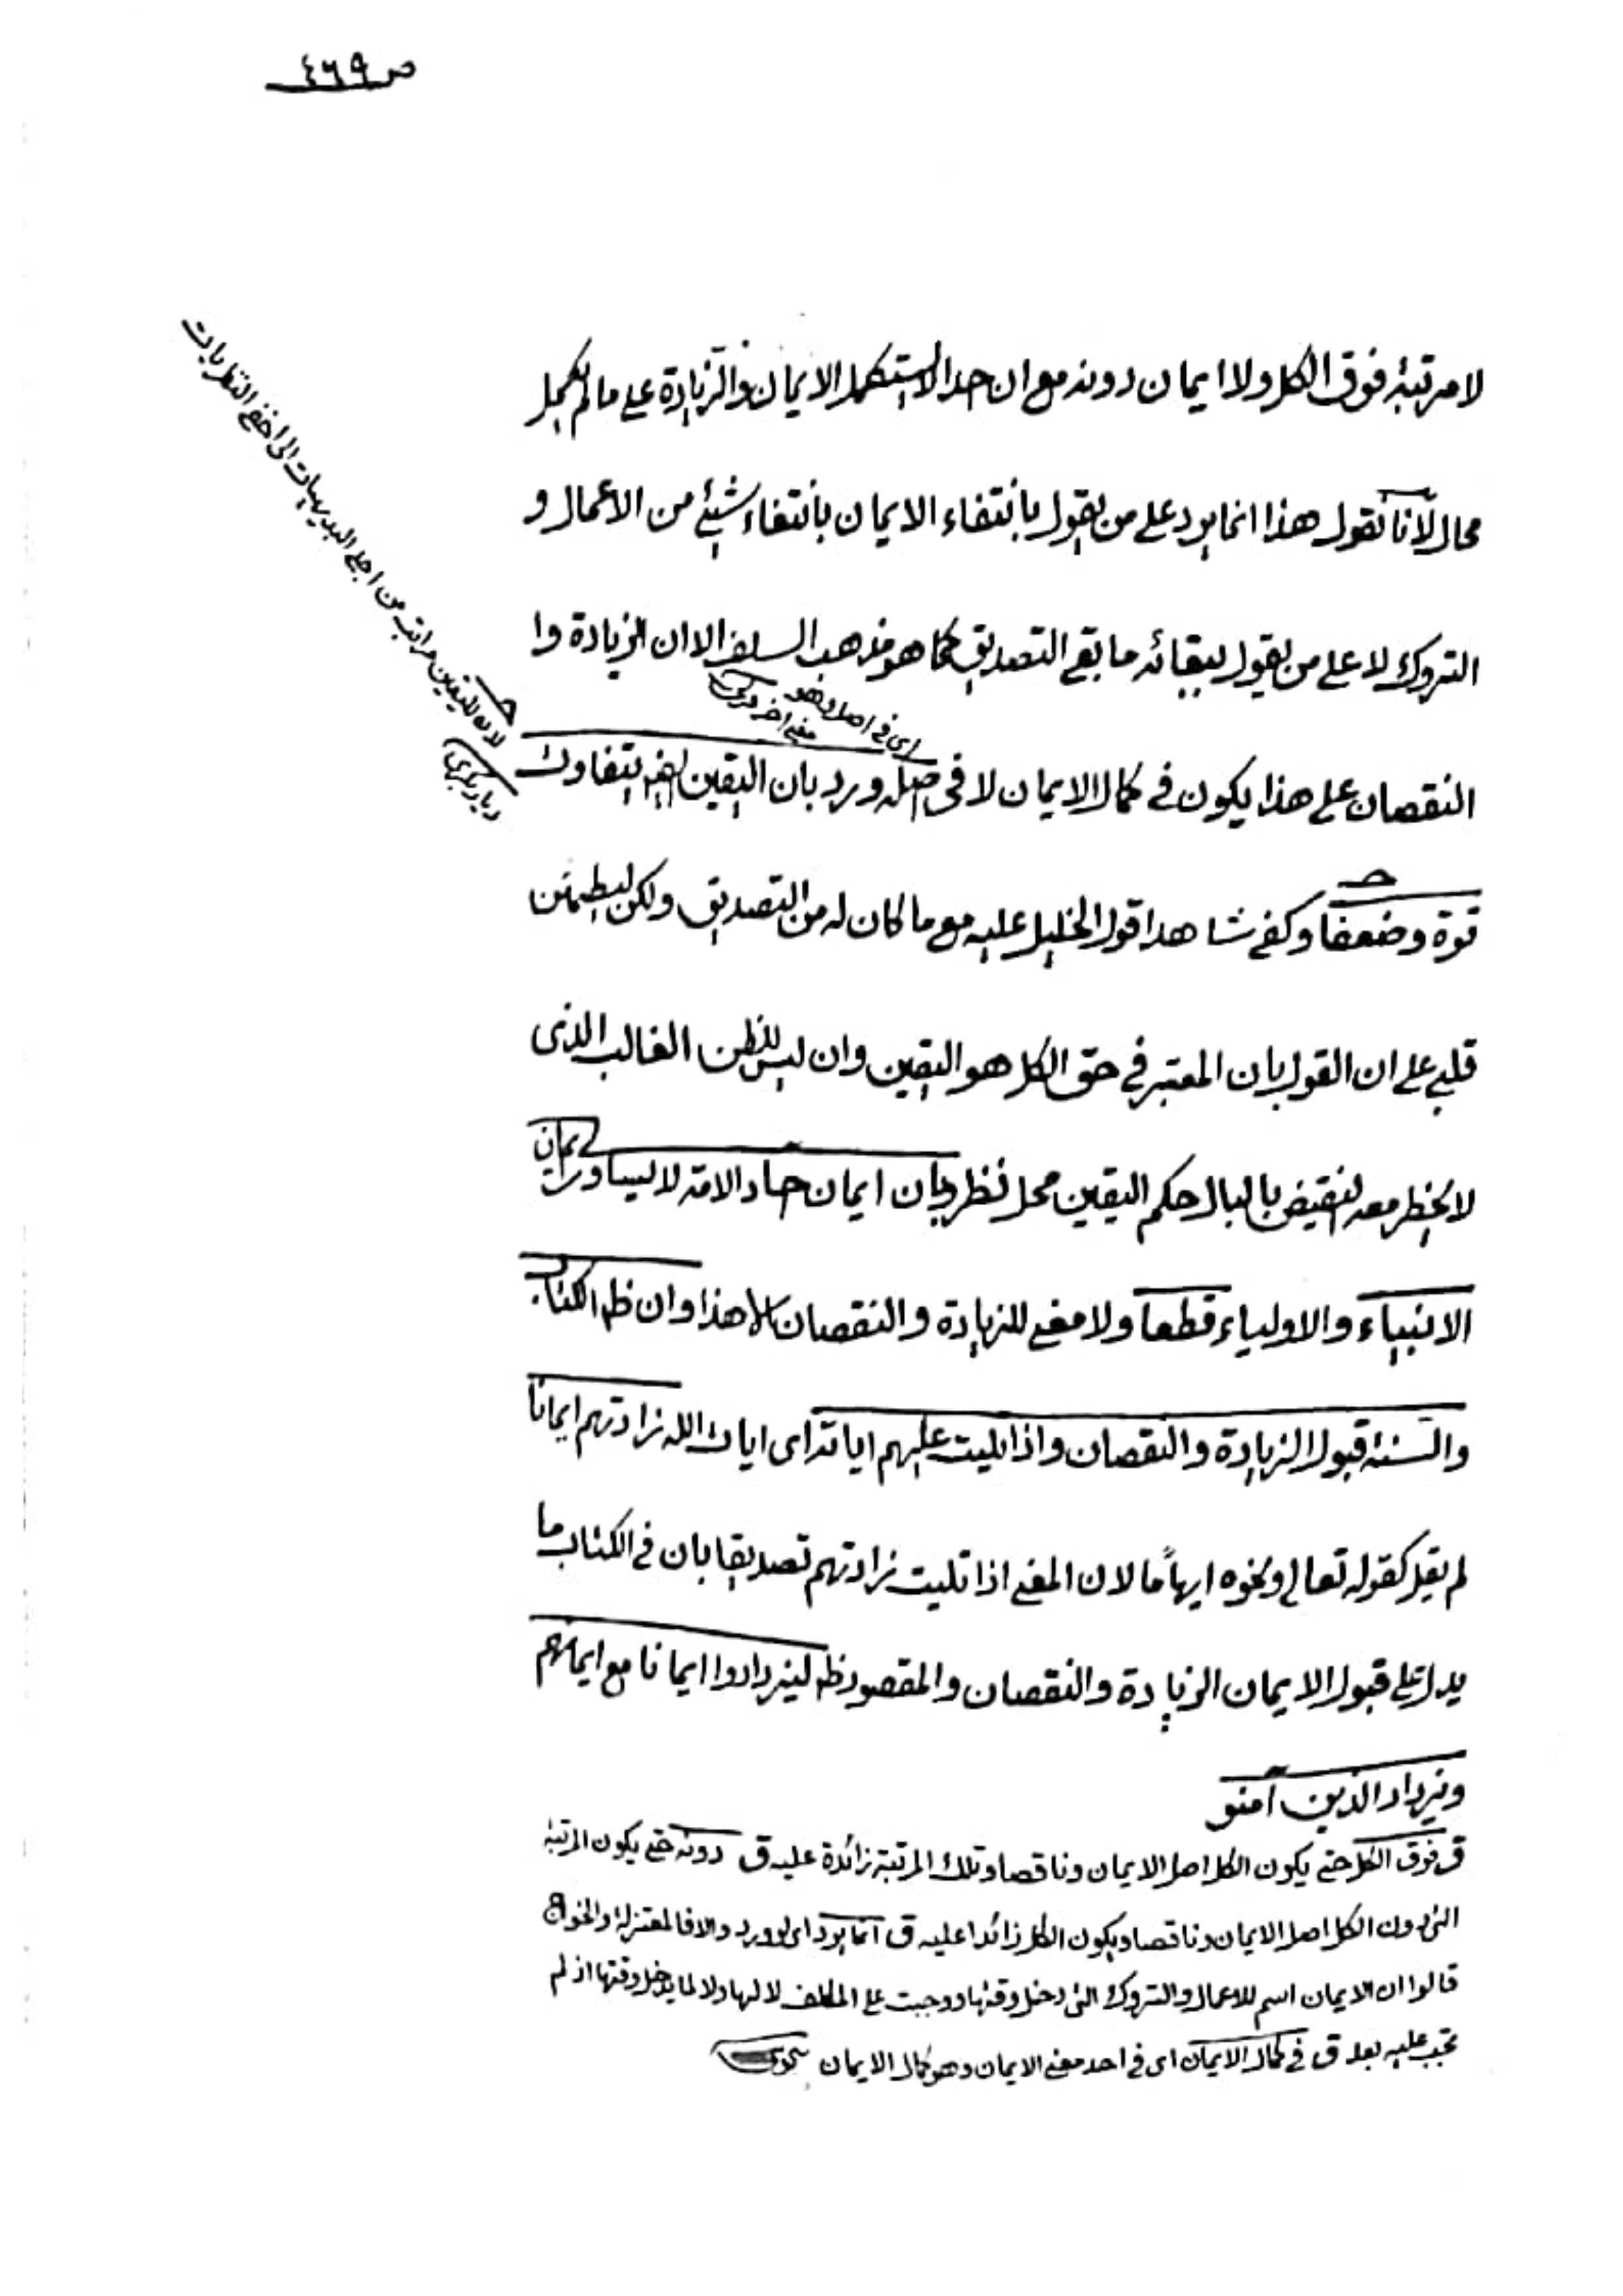 ص ٤٦٩
لا مرتبة فوق الكل ولا ايمان دونه مع ان احدا لا يستكمل الايمان والزيادة على ما لم يكمل
محال لأنا نقول هذا انما يرد على من يقول بانتفاء الايمان بانتفاء شيئ من الاعمال و
التروك لا على من يقول ببقائه ما بقى التصديق كما هو مذهب السلف الا ان الزيادة وا
اى فى اصل وهو
معنى اخر
النقصان على هذا يكون فى كمال الايمان لا فى اصله ورد بان اليقين يتفاوت
قوة وضعفا وكفى شاهدا قول الخليل عليه مع ما كان له من التصديق ولكن ليطمئن
قلبى على ان القول بان المعتبر فى حق الكل هو اليقين وان ليس للظن الغالب الذى
لا يخطر معه النقيض بالبال حكم اليقين محل نظر وبان ايمان احاد الامة لا يساوى ايمان
الانبياء والاولياء قطعا ولا معنى للزيادة والنقصان الا هذا وان ظ الكتاب
والسنة قبول الزيادة والنقصان واذا تليت عليهم اياته اى ايات الله زادتهم ايمانا
لم يقل كقوله تعالى ونحوه ايهاما لان المعنى اذا تليت زادتهم تصديقا بان فى الكتاب ما
يدل على قبول الايمان الزيادة والنقصان والمقصود ظ ليزدادوا ايمانا مع ايمانهم
ويزداد الذين آمنو
ق فوق الكل حتى يكون الكل اصل الايمان وناقصا وتلك المرتبة زائدة عليه ق دونه حتى يكون المرتبة
التى دون الكل اصل الايمان وناقصا ويكون الكل زائدا عليه ق انما يرد اى لو ورد والا فالمعتزلة والخوارج
قالوا ان الايمان اسم للاعمال والتروك التى دخل وقتها ووجبت على المكلف لا لها ولا لما يدخل وقتها اذ لم
تجب عليه بعد ق فى كمال الايمان اى فى احد معنى الايمان وهو كمال الايمان
لان لليقين مراتب من اجلى البديهيات الى اخفى النظريات
دياربكرى